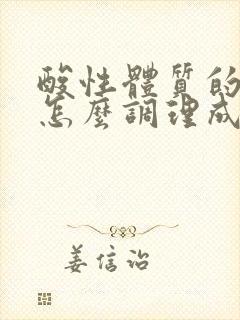 酸性體質的
怎麼調理成
姜信治